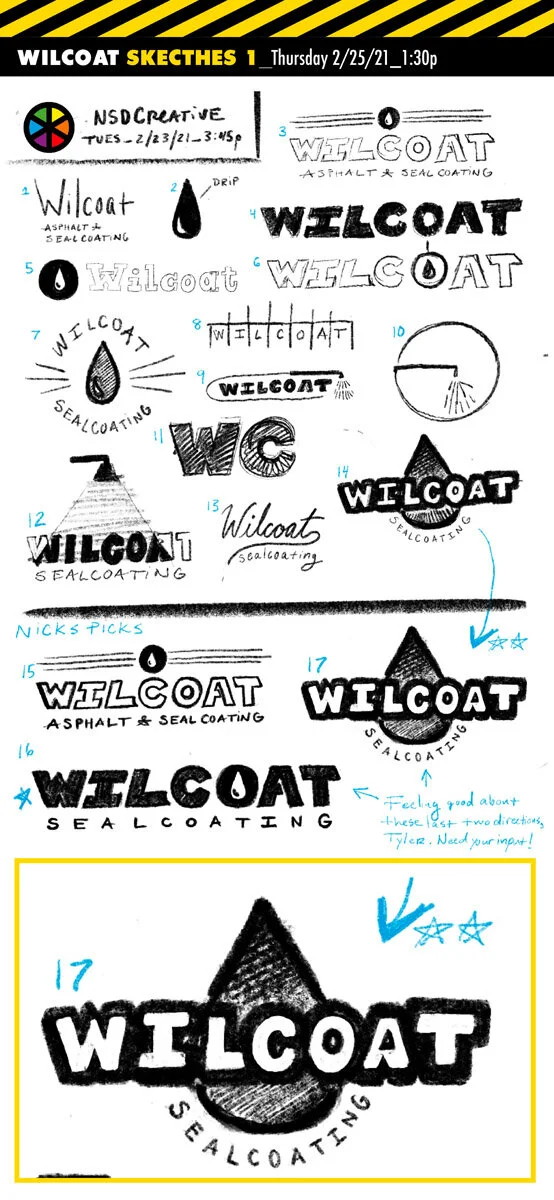 WILCOAT SKECTHES 1_Thursday 2/25/21_1:30p
NSDCREATIVE
TUES_2/23/21_3:45p
1
Wilcoat
ASPHALT &
SEALCOATING
2
DRIP
3
WILCOAT
ASPHALT & SEALCOATING
4
WILCOAT
5
Wilcoat
6
WILCOAT
7
WILCOAT
SEALCOATING
8
WILCOAT
9
WILCOAT
10
11
WC
12
WILCOAT
SEALCOATING
13
Wilcoat
sealcoating
14
WILCOAT
SEALCOATING
NICKS PICKS
15
WILCOAT
ASPHALT & SEALCOATING
17
WILCOAT
SEALCOATING
16
WILCOAT
SEALCOATING
Feeling good about
these last two directions,
Tyler. Need your input!
17
WILCOAT
SEALCOATING